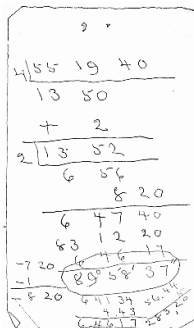 4 55 19 40
13 50
+ 2
2 13 52
6 56
8 20
6 47 40
83 12 20
-7 20 6 46 17
-1 89° 58' 37"
-8 20 6 41 34 56.44
4.43
6 46 17